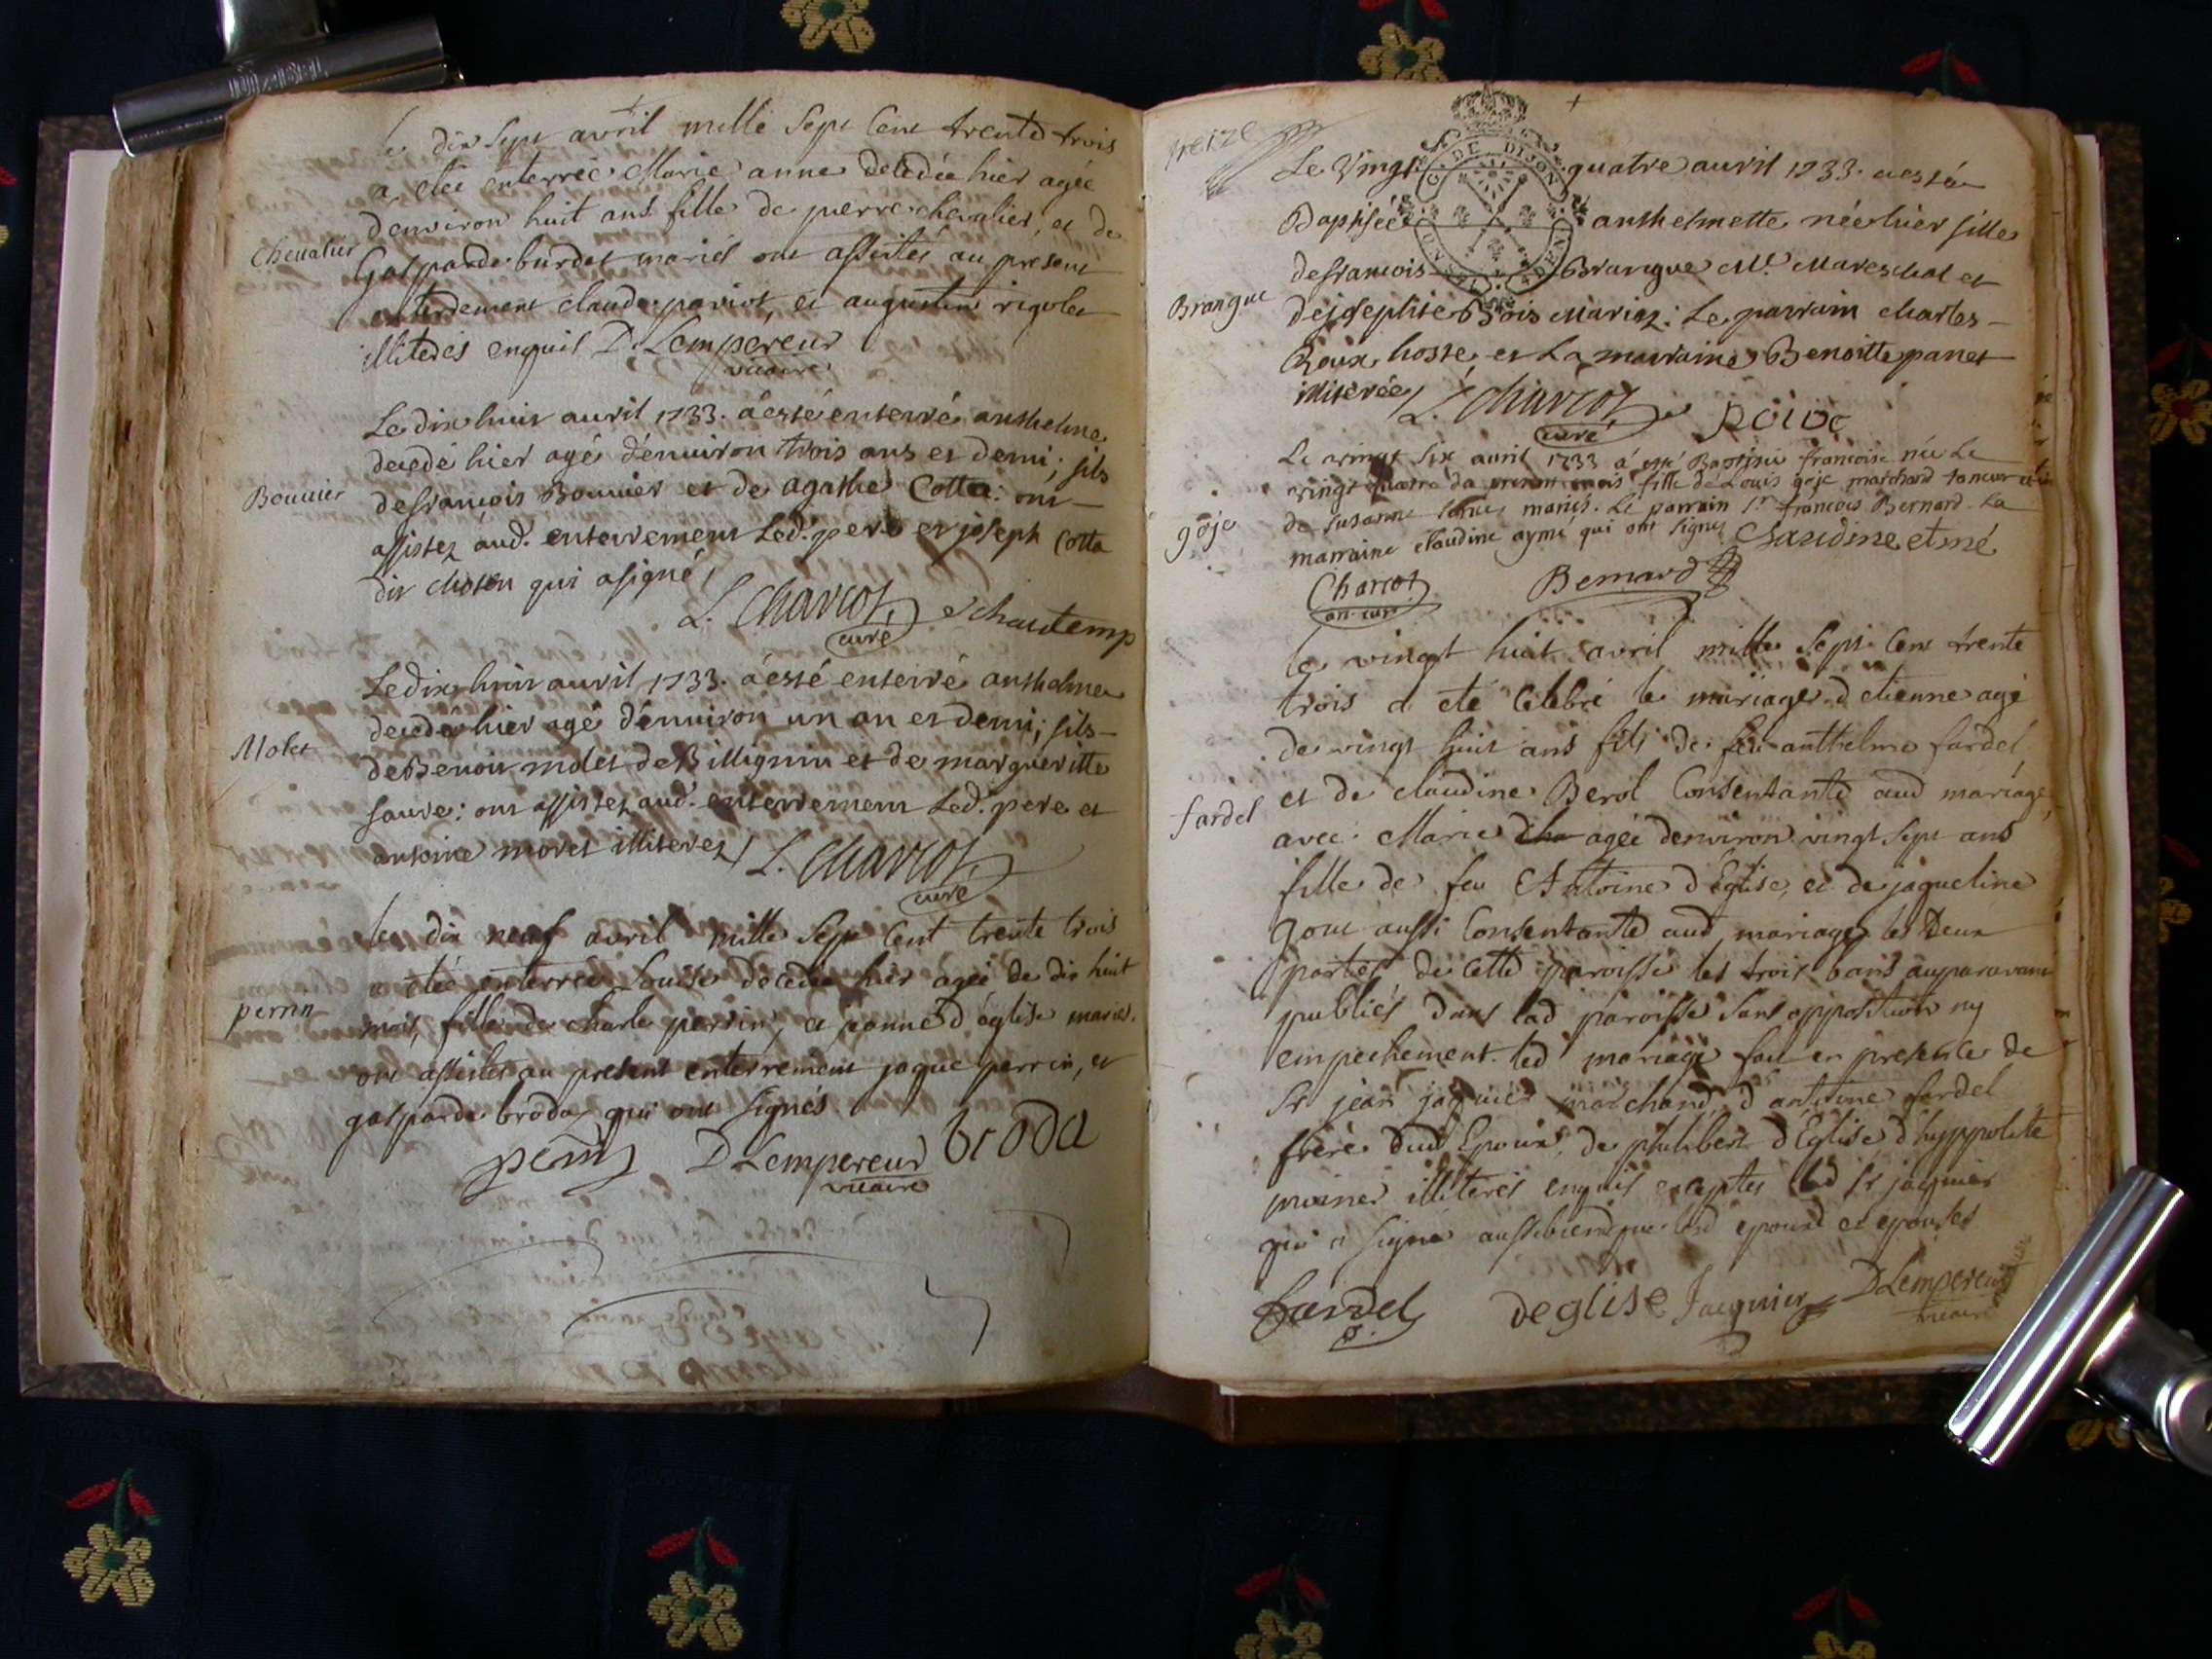 le dix sept avril mille sept cent trente trois
a etée enterrée Marie anne decedée hier agée
denviron huit ans fille de pierre chevalier, et de
Chevalier
Gasparde burdet mariés ont assistés au present
enterrement claude pariot et augustin rigolet
illiterés enquis D. Lempereur
vicaire
Le dix huit auril 1733. a esté enterré anthelme
decedé hier agé d'enuiron trois ans et demi; fils
Bouuier
de françois Bouuier et de agathe Cotta: ont
assistez aud. enterrement Led. pere et joseph Cotta
dit choten qui a signé
L. Charcot
curé
chautemp
Le dix huit auril 1733. a esté enterré anthelme
decedé hier agé d'enuiron un an et demi; fils
Molet
de Benoit molet de Billignin et de margueritte
faure: ont assistez aud. enterrement Led. pere et
antoine moret illiterez L. Charcot
curé
le dix neuf avril mille sept cent trente trois
a etée enterrée Louise decedée hier agée de dix huit
perrin
mois, fille de charle perrin, et janne d'église mariés.
ont assistés au present enterrement jaque perrin, et
gasparde broda qui ont signés
perrin D Lempereur broda
vicaire
treize
G. DE DIJON
Le Vingt quatre auril 1733. a esté
Baptisée anthelmette née hier fille
de francois Brangue Me. Mareschal et
Brangue
de josephte Bois Mariez: Le parrain charles
Roux hoste, et La marraine Benoitte panet
illiterée L. Charcot
curé
Le vingt six auril 1733 a esté Baptisée francoise née Le
vingt quatre du present mois fille de Louis goje marchand taneur et
goje
de susanne mariés. Le parrain Sr. francois Bernard La
marraine claudine aymé qui ont signes Claudine etmé
Charcot Bernard
an. curé
le vingt huit avril mille sept cent trente
trois a eté celebré le mariage d etienne agé
de vingt huit ans fils de feu anthelme fardel
fardel
et de claudine Berol consentante aud mariage,
avec Marie agée denviron vingt sept ans
fille de feu Antoine d'Eglise, et de jaqueline
goue aussi consentante aud mariage les deux
parties de cette paroisse les trois bans auparavant
publiés dans lad paroisse sans opposition ny
empechement. led mariage fait en presence de
Sr jean jaquier marchand, d antoine fardel
frere dud Epoux, de philibert d'Eglise d'hyppolite
moine illiterés enquis exceptes led Sr jaquier
qui a signé aussibienque lesd epoux et epouses
fardel deglise Jaquier D Lempereur
vicaire